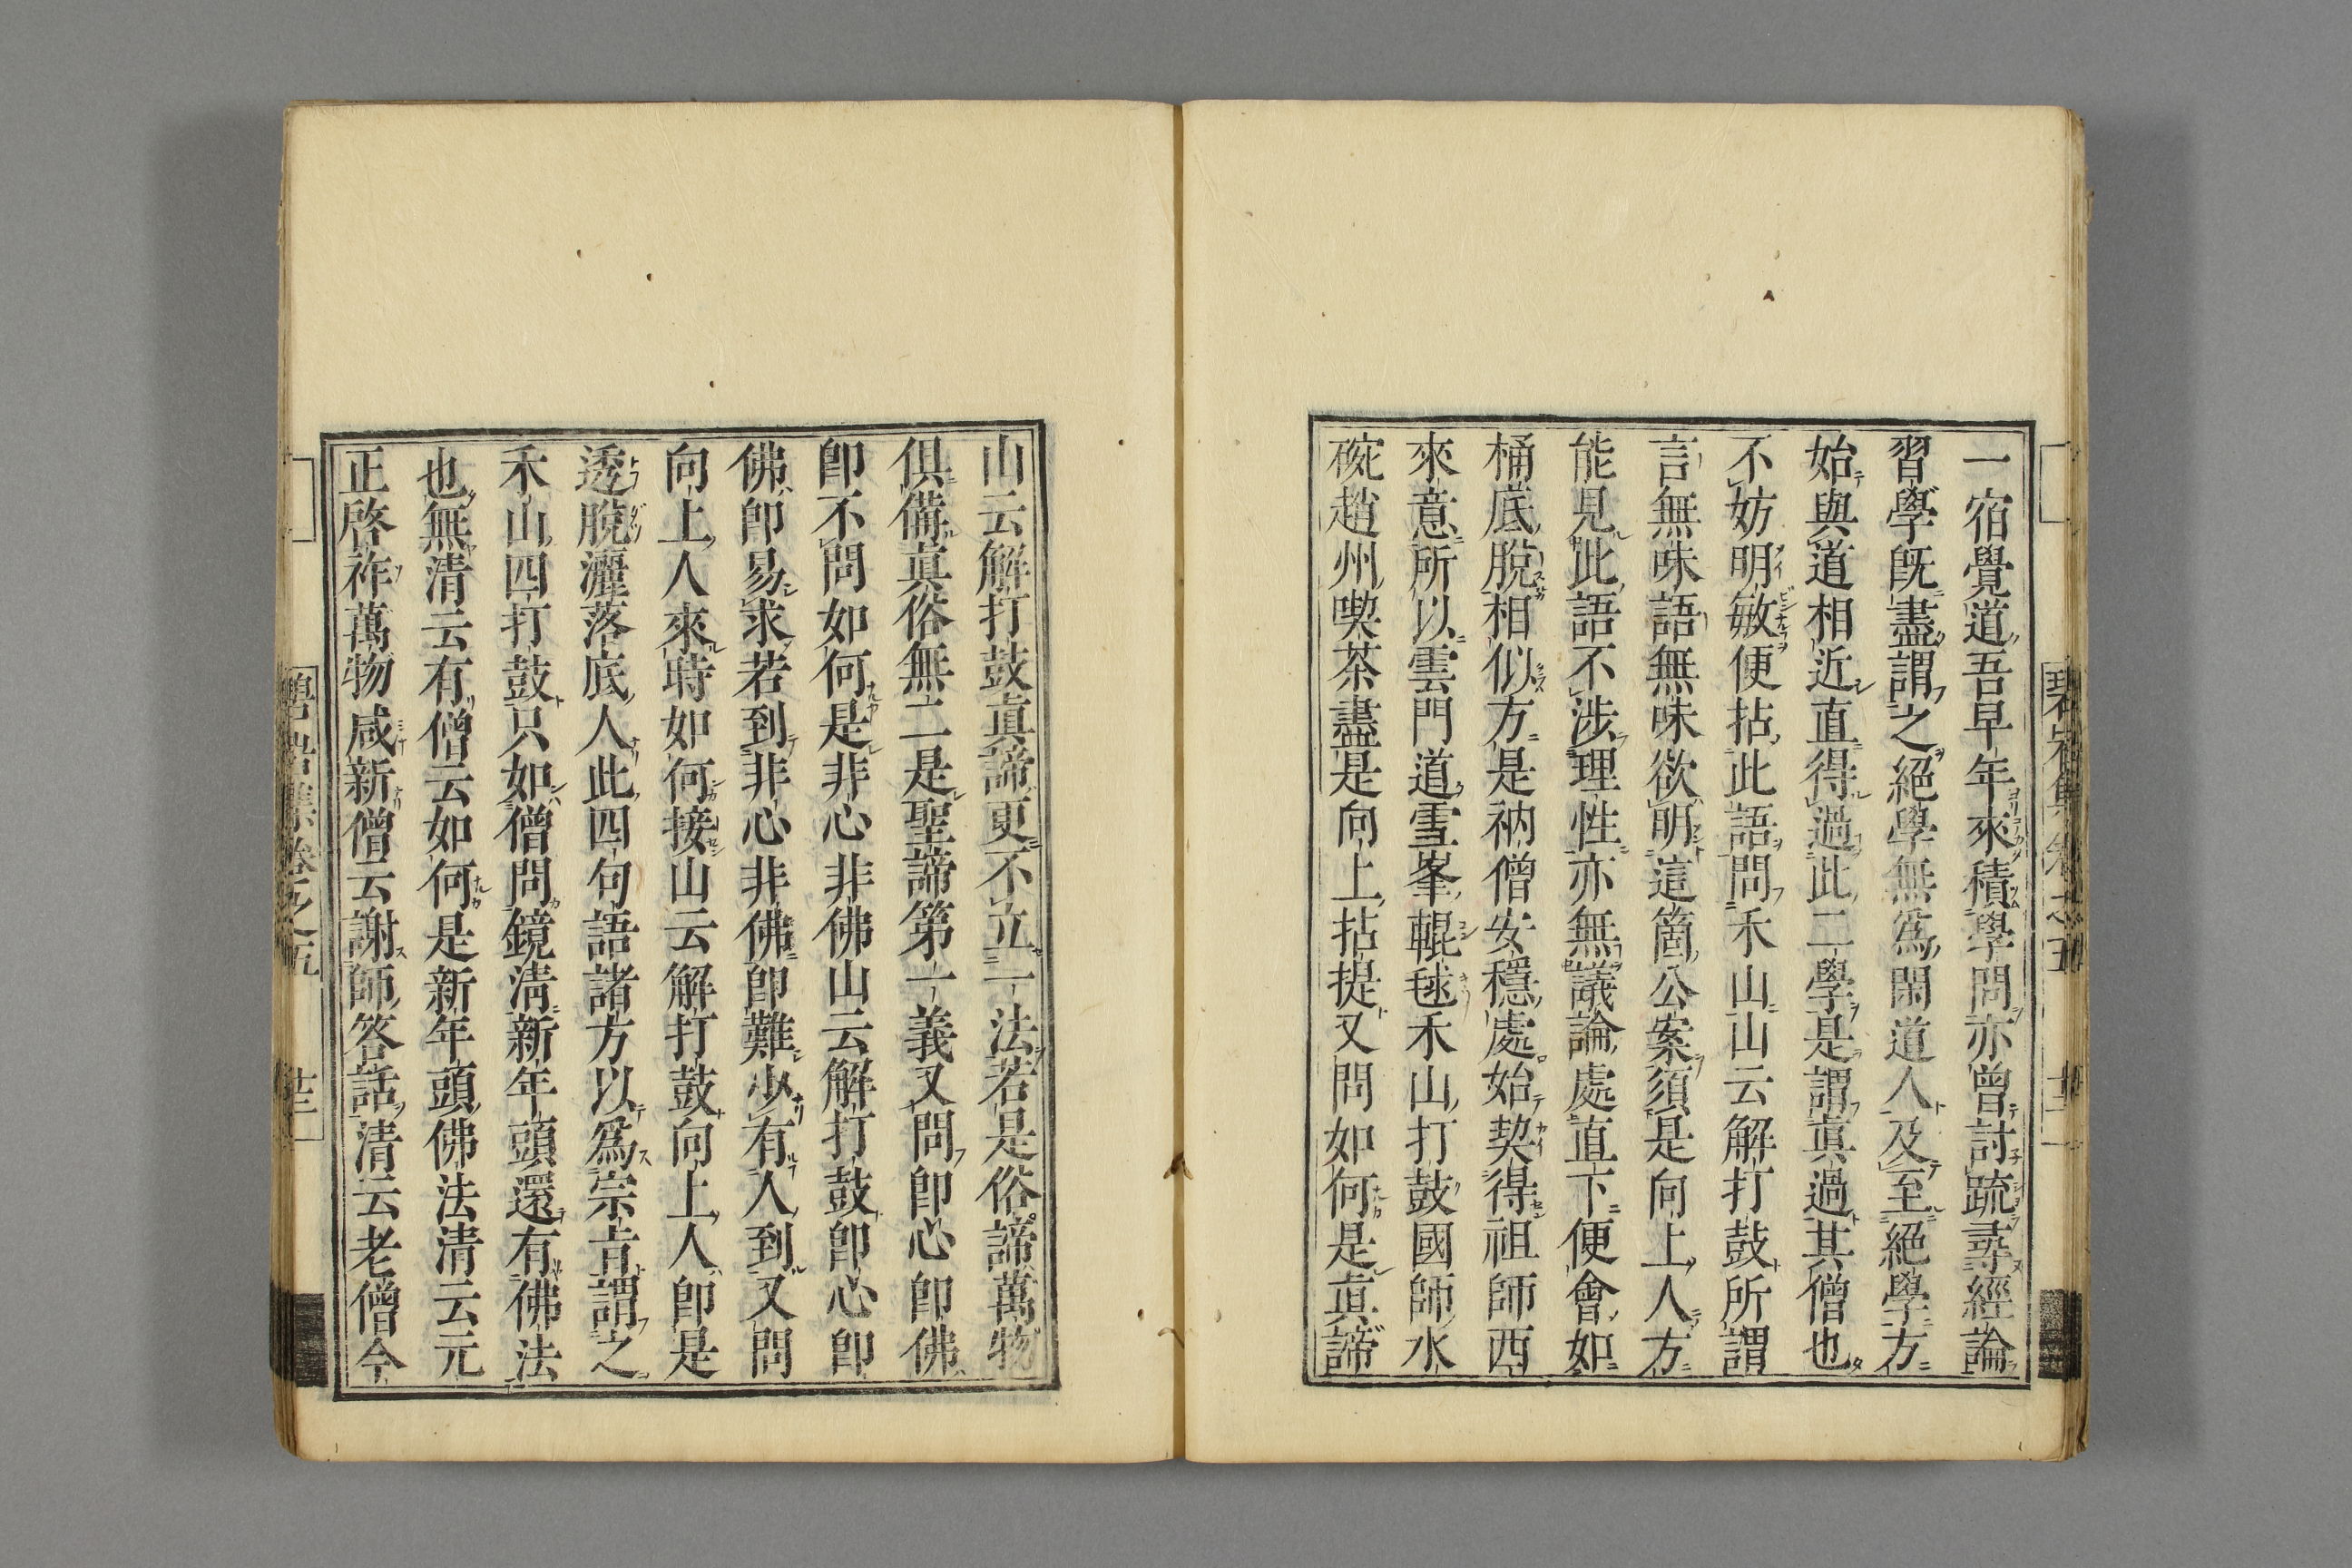 一宿覺道吾早年來積學問亦曾討疏尋經論
習學旣盡謂之絕學無爲閑道人及至絕學方
始與道相近直得過此二學是謂眞過其僧也
不妨明敏便拈此語問禾山山云解打鼓所謂
言無味語無味欲明這箇公案須是向上人方
能見此語不涉理性亦無議論處直下便會如
桶底脫相似方是衲僧安穩處始契得祖師西
來意所以雲門道雪峯輥毬禾山打鼓國師水
碗趙州喫茶盡是向上拈提又問如何是眞諦
山云解打鼓眞諦更不立一法若是俗諦萬物
俱備眞俗無二是聖諦第一義又問卽心卽佛
卽不問如何是非心非佛山云解打鼓卽心卽
佛卽易求若到非心非佛卽難少有人到又問
向上人來時如何接山云解打鼓向上人卽是
透脫灑落底人此四句語諸方以爲宗旨謂之
禾山四打鼓只如僧問鏡淸新年頭還有佛法
也無淸云有僧云如何是新年頭佛法淸云元
正啓祚萬物咸新僧云謝師答話淸云老僧今
碧岩集卷之五
十三